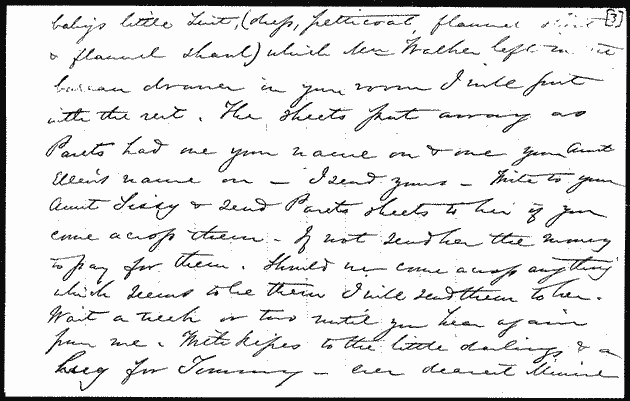 [3]
baby's little suit, (dress, petticoat, flannel skirt
& flannel shawl) which Mrs Walker left in the
bureau drawer in your room I will put
with the rest. The sheets put away as
Parets had one your name on & one your Aunt
Ellen's name on – I send yours – Write to your
Aunt Sissy & send Parets sheets to her if you
come across them – If not send her the money
to pay for them. Should we come across anything
which seems to be them I will send them to her.
Wait a week or two until you hear again
from me. With kisses to the little darlings & a
hug for Tommy – ever dearest Minnie